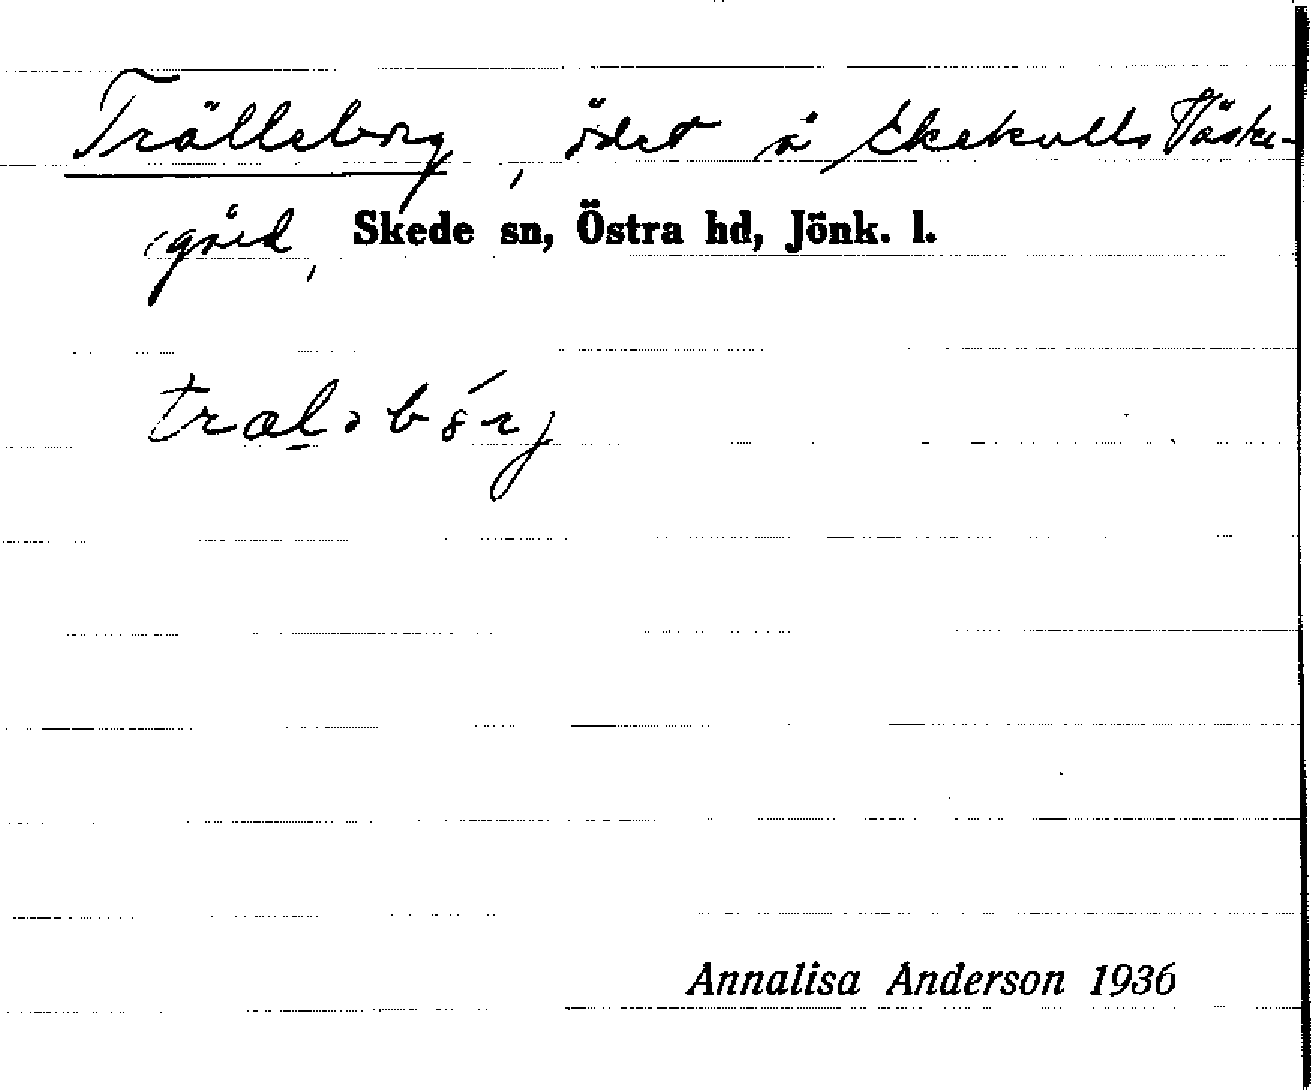 Trälleborg, ödet å Ekekulls Väske-
gård, Skede sn, Östra hd, Jönk. l.
Annalisa Anderson 1936